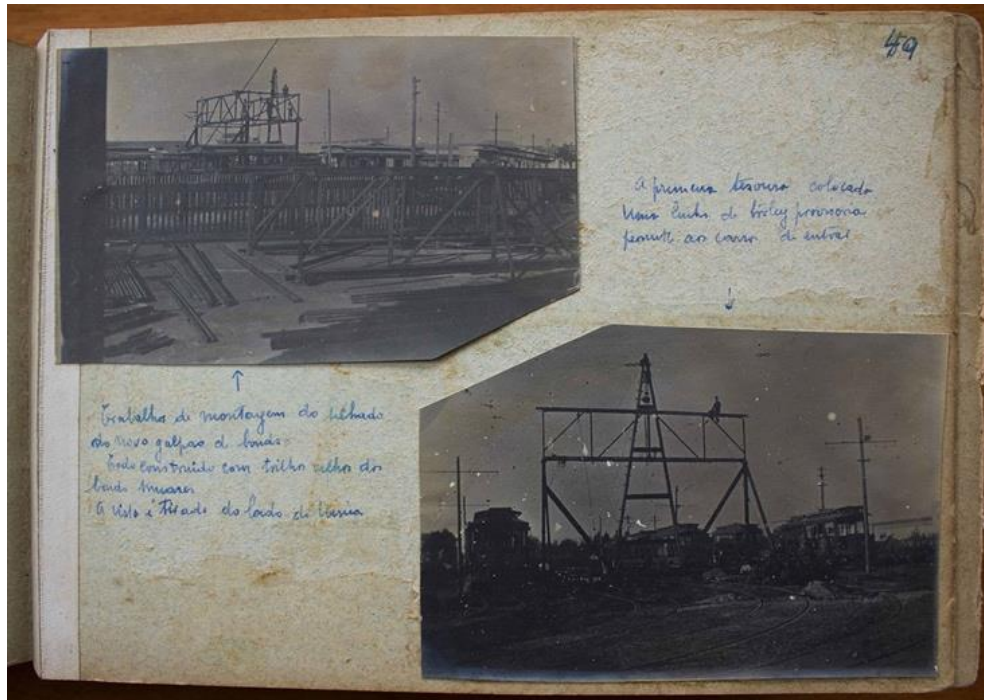 49
A primeira tesoura colocada
Uma linha de troley provisoria
permite ao carro de entrar
↓
↑
Trabalho de montagem do telhado
do novo galpão d bonds.
Todo construido com trilhos velhos dos
bonds muares
A vista é tirada do lado da Usina